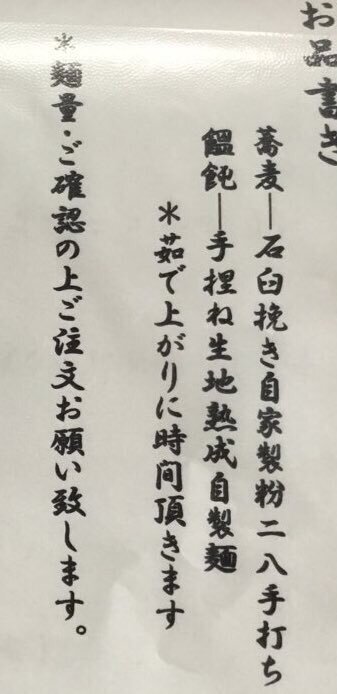 お品書き
蕎麦―石臼挽き自家製粉二八手打ち
饂飩―手捏ね生地熟成自製麺
＊茹で上がりに時間頂きます
＊麺量・ご確認の上ご注文お願い致します。